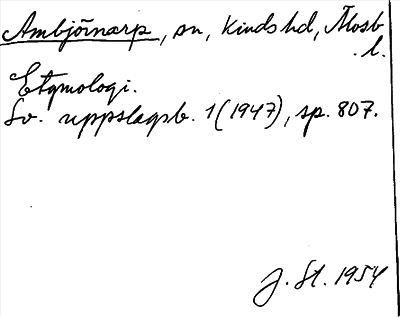 Ambjörnarp, sn, Kinds hd, Älvsb.
l.
Etymologi.
Sv. uppslagsb. 1 (1947), sp. 807.
J. St. 1954